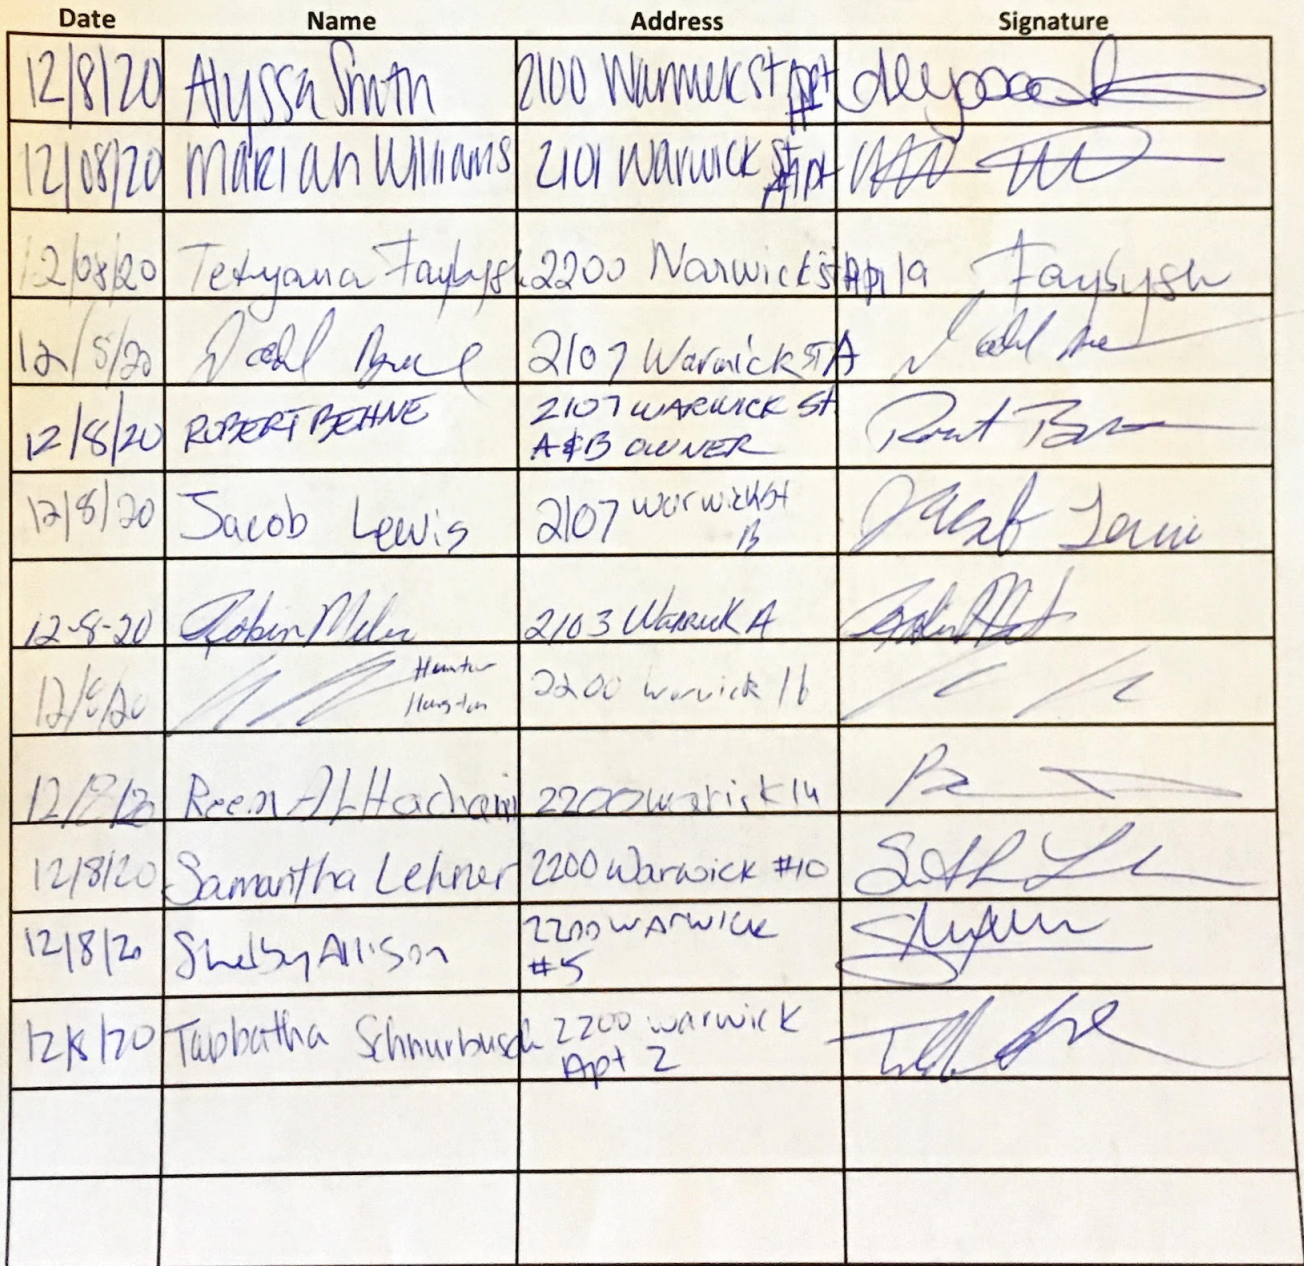 Date Name Address Signature
12/8/20 Alyssa Smith 2100 Warwick St Apt
12/08/20 Mariah Williams 2101 Warwick St Apt
12/08/20 Tetyana Faybysh 2200 Narwick St Apt 19 Faybysh
12/8/20 2107 Warwick ST A
12/8/20 ROBERT BEHNE 2107 WARWICK St
A & B OWNER
12/8/20 Jacob Lewis 2107 Warwick St Jacob Lewis
B
12-8-20 Robin 2103 Warwick A
Hunter
12/8/20 2200 Warwick 16
12/8/20 Reem AL Hachami 2200 warick 14
12/8/20 Samantha Lehner 2200 Warwick #10
12/8/20 Shelby Allison 2200 WARWICK
#5
12/8/20 Tabbatha Schnurbusch 2200 warwick
Apt 2